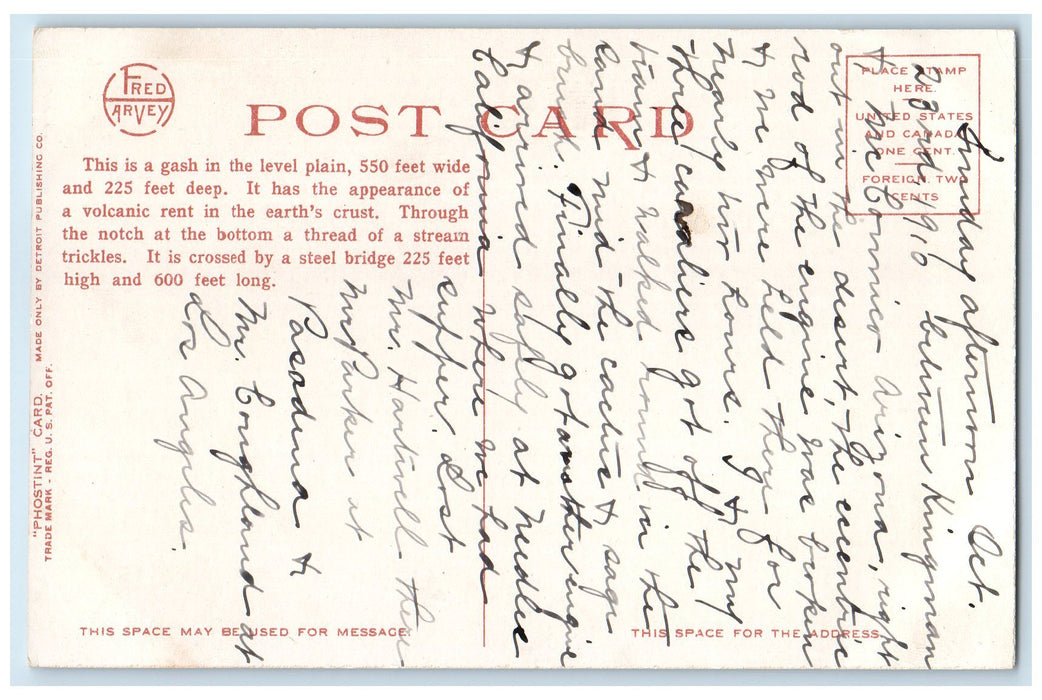 FRED
HARVEY
POST CARD
This is a gash in the level plain, 550 feet wide
and 225 feet deep. It has the appearance of
a volcanic rent in the earth's crust. Through
the notch at the bottom a thread of a stream
trickles. It is crossed by a steel bridge 225 feet
high and 600 feet long.
PLACE STAMP
HERE.
UNITED STATES
AND CANADA
ONE CENT.
FOREIGN, TWO
CENTS
"PHOSTINT" CARD. MADE ONLY BY DETROIT PUBLISHING CO.
TRADE MARK - REG. U. S. PAT. OFF.
THIS SPACE MAY BE USED FOR MESSAGE.
THIS SPACE FOR THE ADDRESS.
Sunday afternoon Oct.
23rd, 1910 between Kingman
& McConnico Arizona, right
out in the desert, the eccentric
rod of the engine was broken
& we were held there for
nearly two hours. I & my
three cavaliers got off the
train & walked round in the
sand mid the cactus & sage
brush. Finally got another engine
& arrived safely at Needles
California where we had
supper. Lost
Mr. Hartwell there
Mr Parker at
Pasadena &
Mr. Coughland at
Los Angeles.